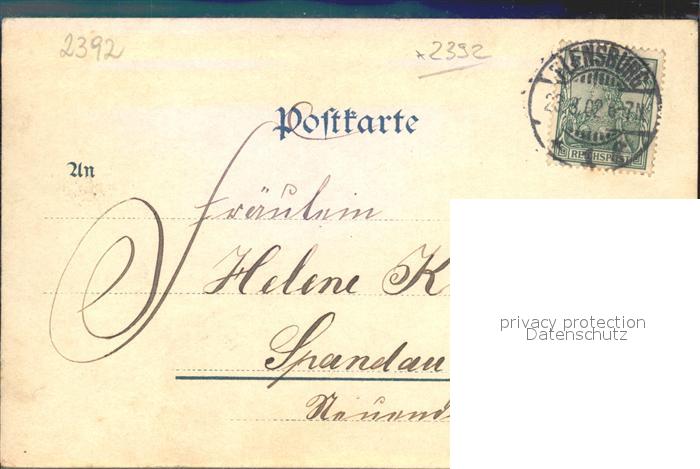 2392
*2392
FLENSBURG
REICHSPOST
Postkarte
An
Fräulein
Helene K
Spandau
privacy protection
Datenschutz